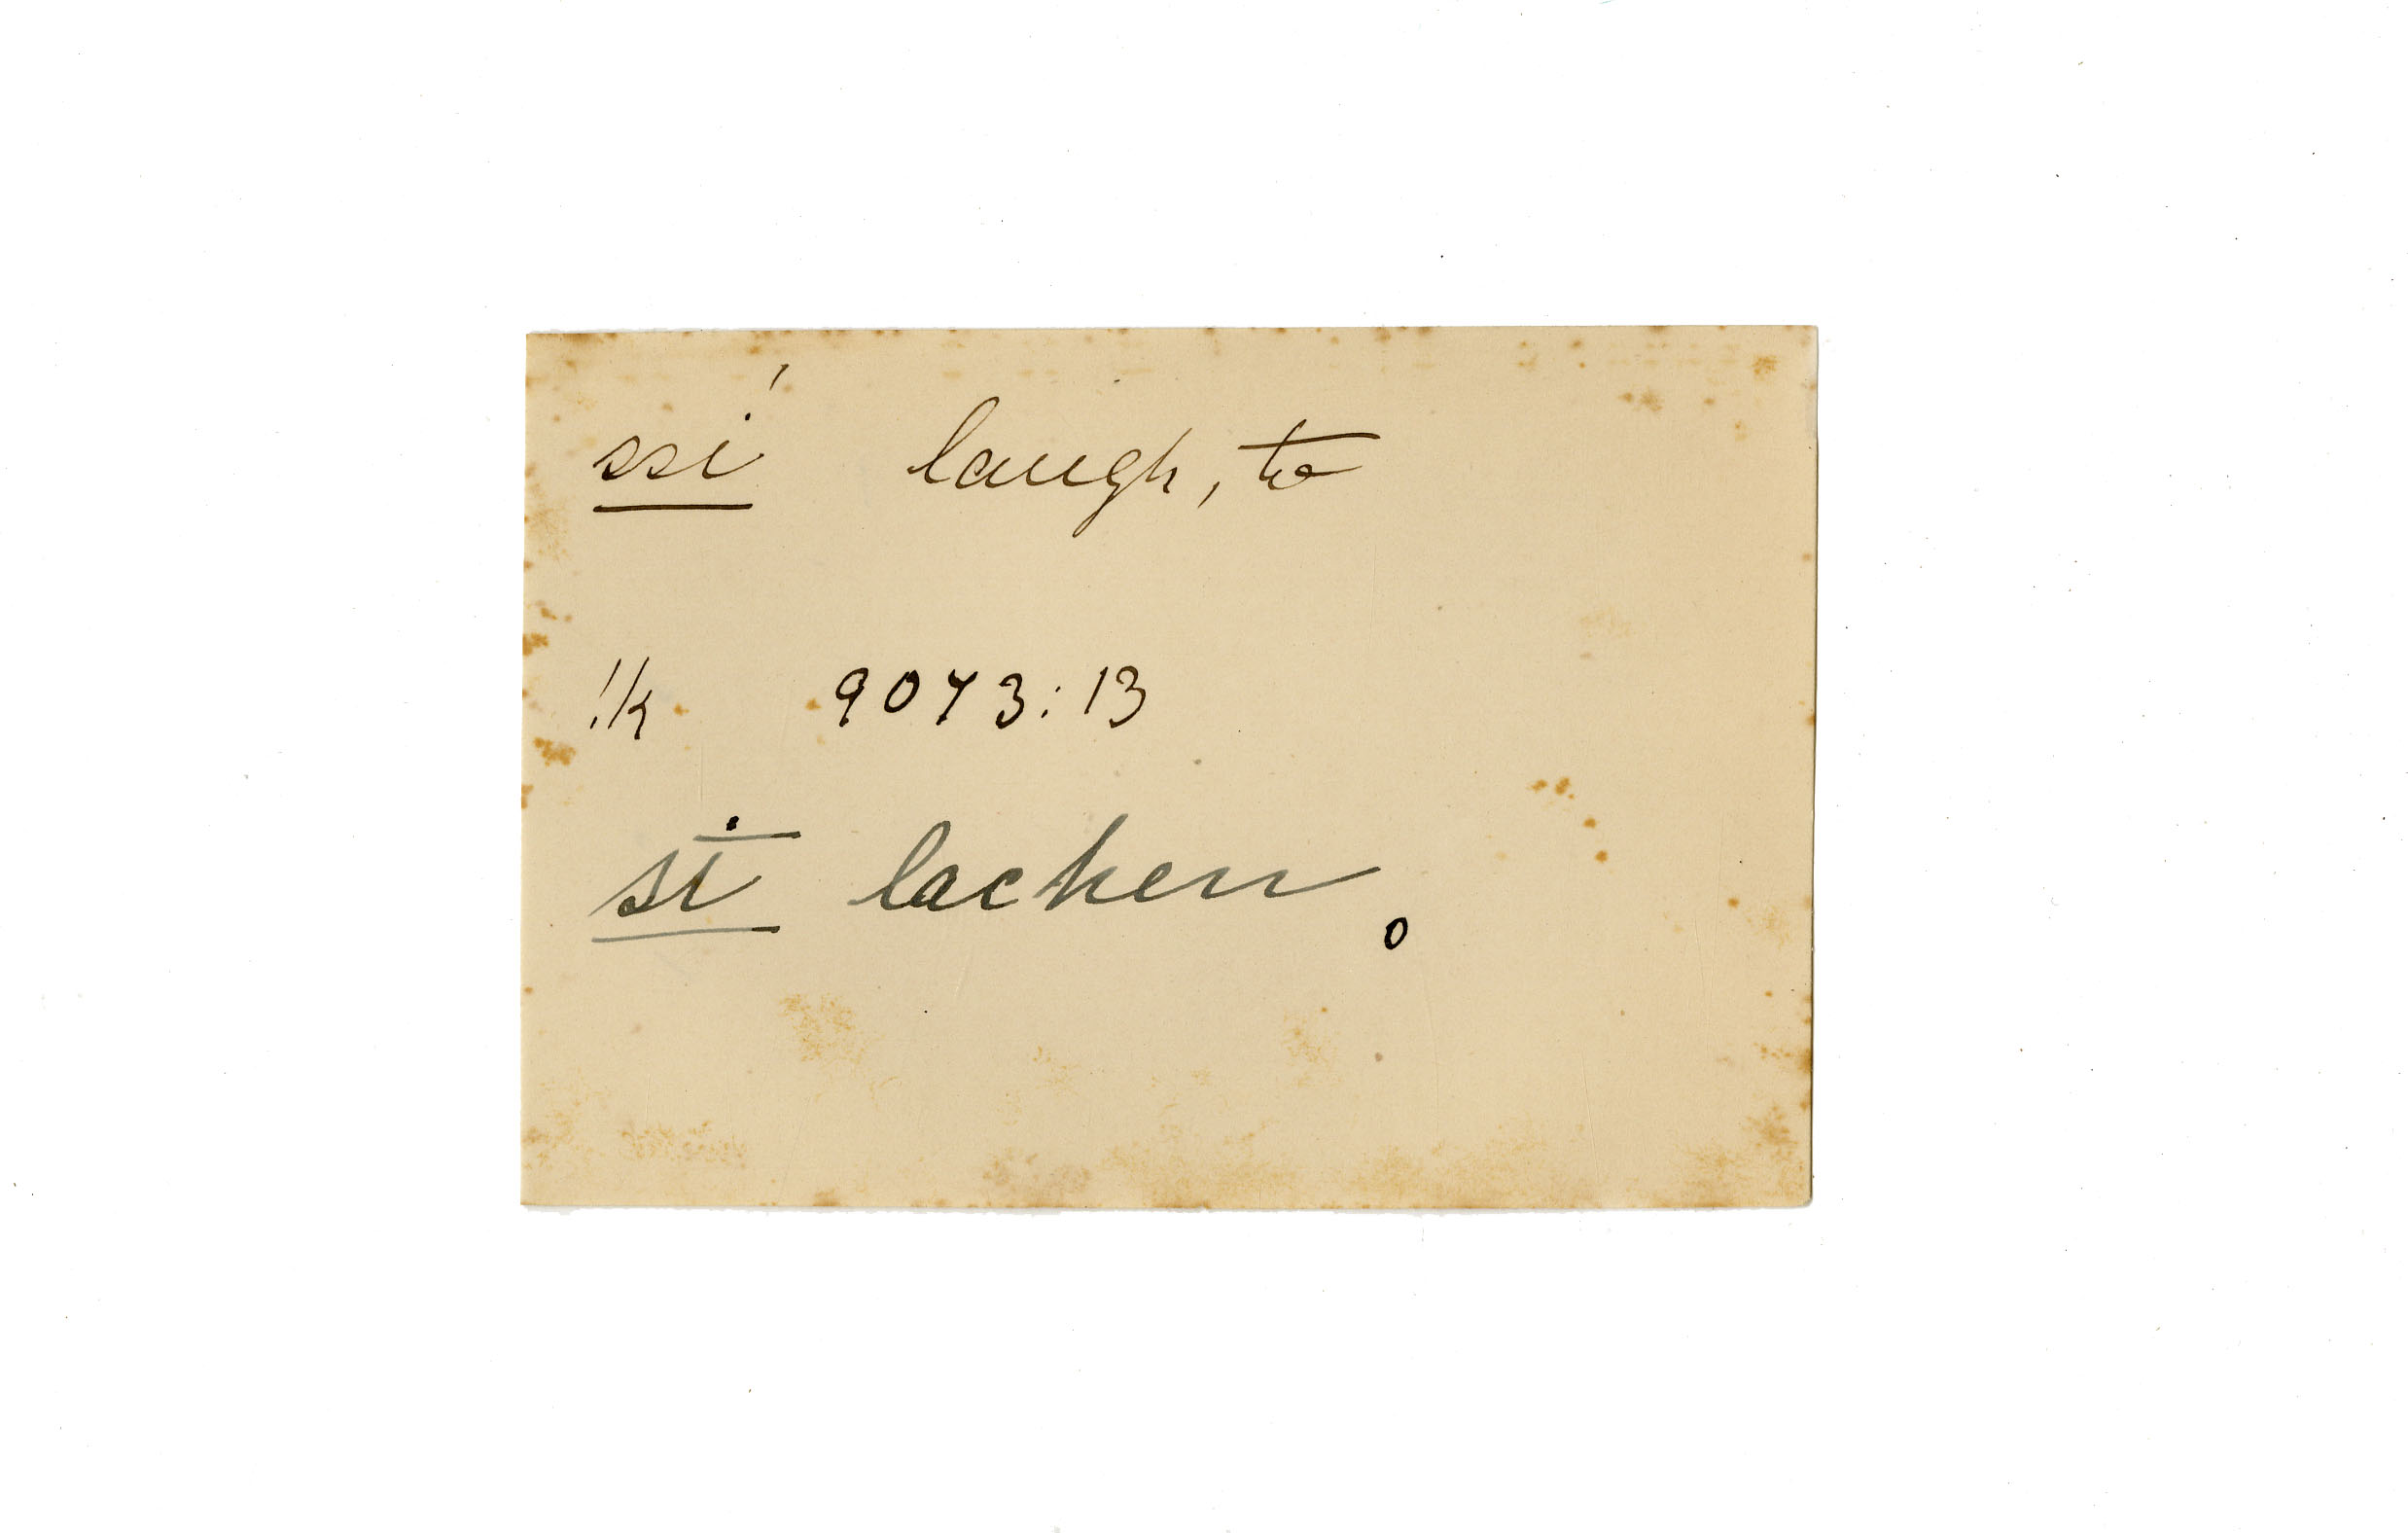 ssí laugh, to
!k 9073:13
sī lachen.